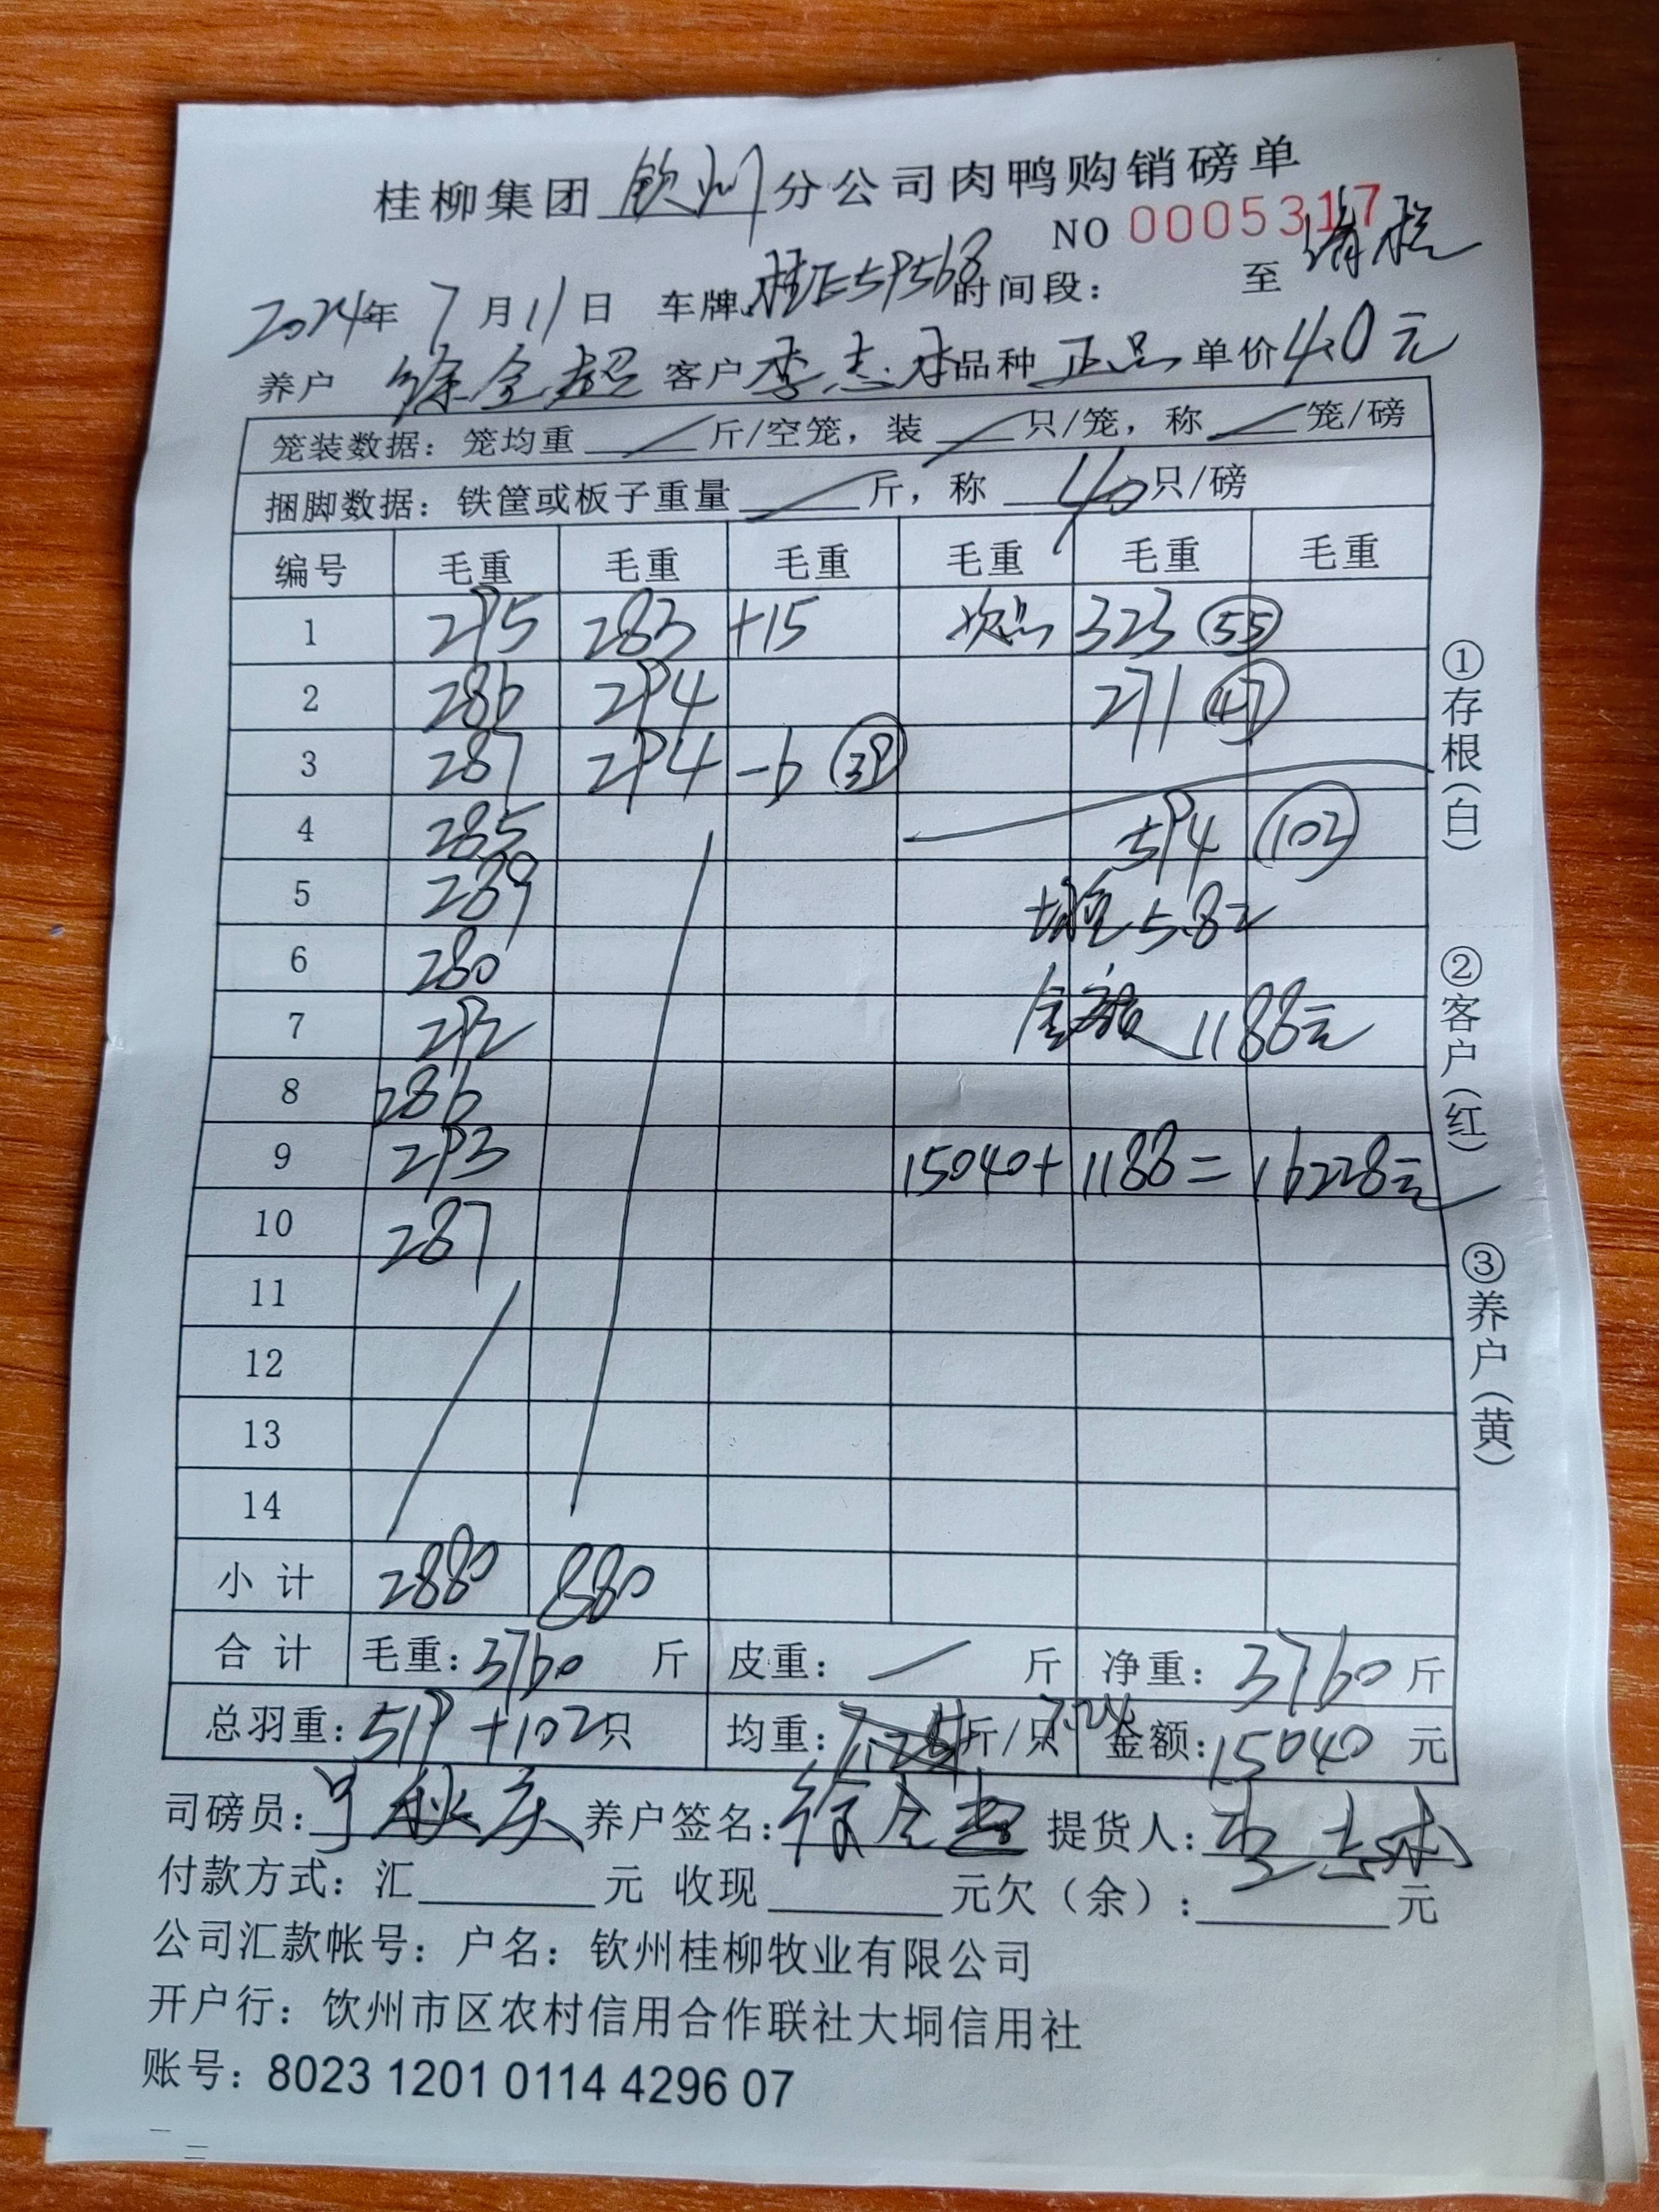 桂柳集团 钦州 分公司肉鸭购销磅单
NO 0005317
2024年 7月11日 车牌:桂E59568 时间段： 至 清栏
养户 徐全超 客户 李志 品种 正品 单价 4.0元
笼装数据：笼均重 斤/空笼，装 只/笼，称 笼/磅
捆脚数据：铁筐或板子重量 斤，称 40 只/磅
编号 毛重 毛重 毛重 毛重 毛重 毛重
1 295 283 +15 次品 323 (55)
2 286 294 271 (47)
3 287 294 -6 (39)
4 285 594 (102)
5 289 均重 5.82
6 280
7 292 金额 1188元
8 286
9 293 15040+1188=16228元
10 287
11
12
13
14
小计 2880 880
合计 毛重：3760 斤 皮重： 斤 净重：3760 斤
总羽重：519+102只 均重： 斤/只 7.24 金额：15040 元
司磅员： 养户签名：徐全超 提货人：
付款方式：汇 元 收现 元欠（余）： 元
公司汇款帐号：户名：钦州桂柳牧业有限公司
开户行：钦州市区农村信用合作联社大垌信用社
账号：8023 1201 0114 4296 07
①存根（白）
②客户（红）
③养户（黄）